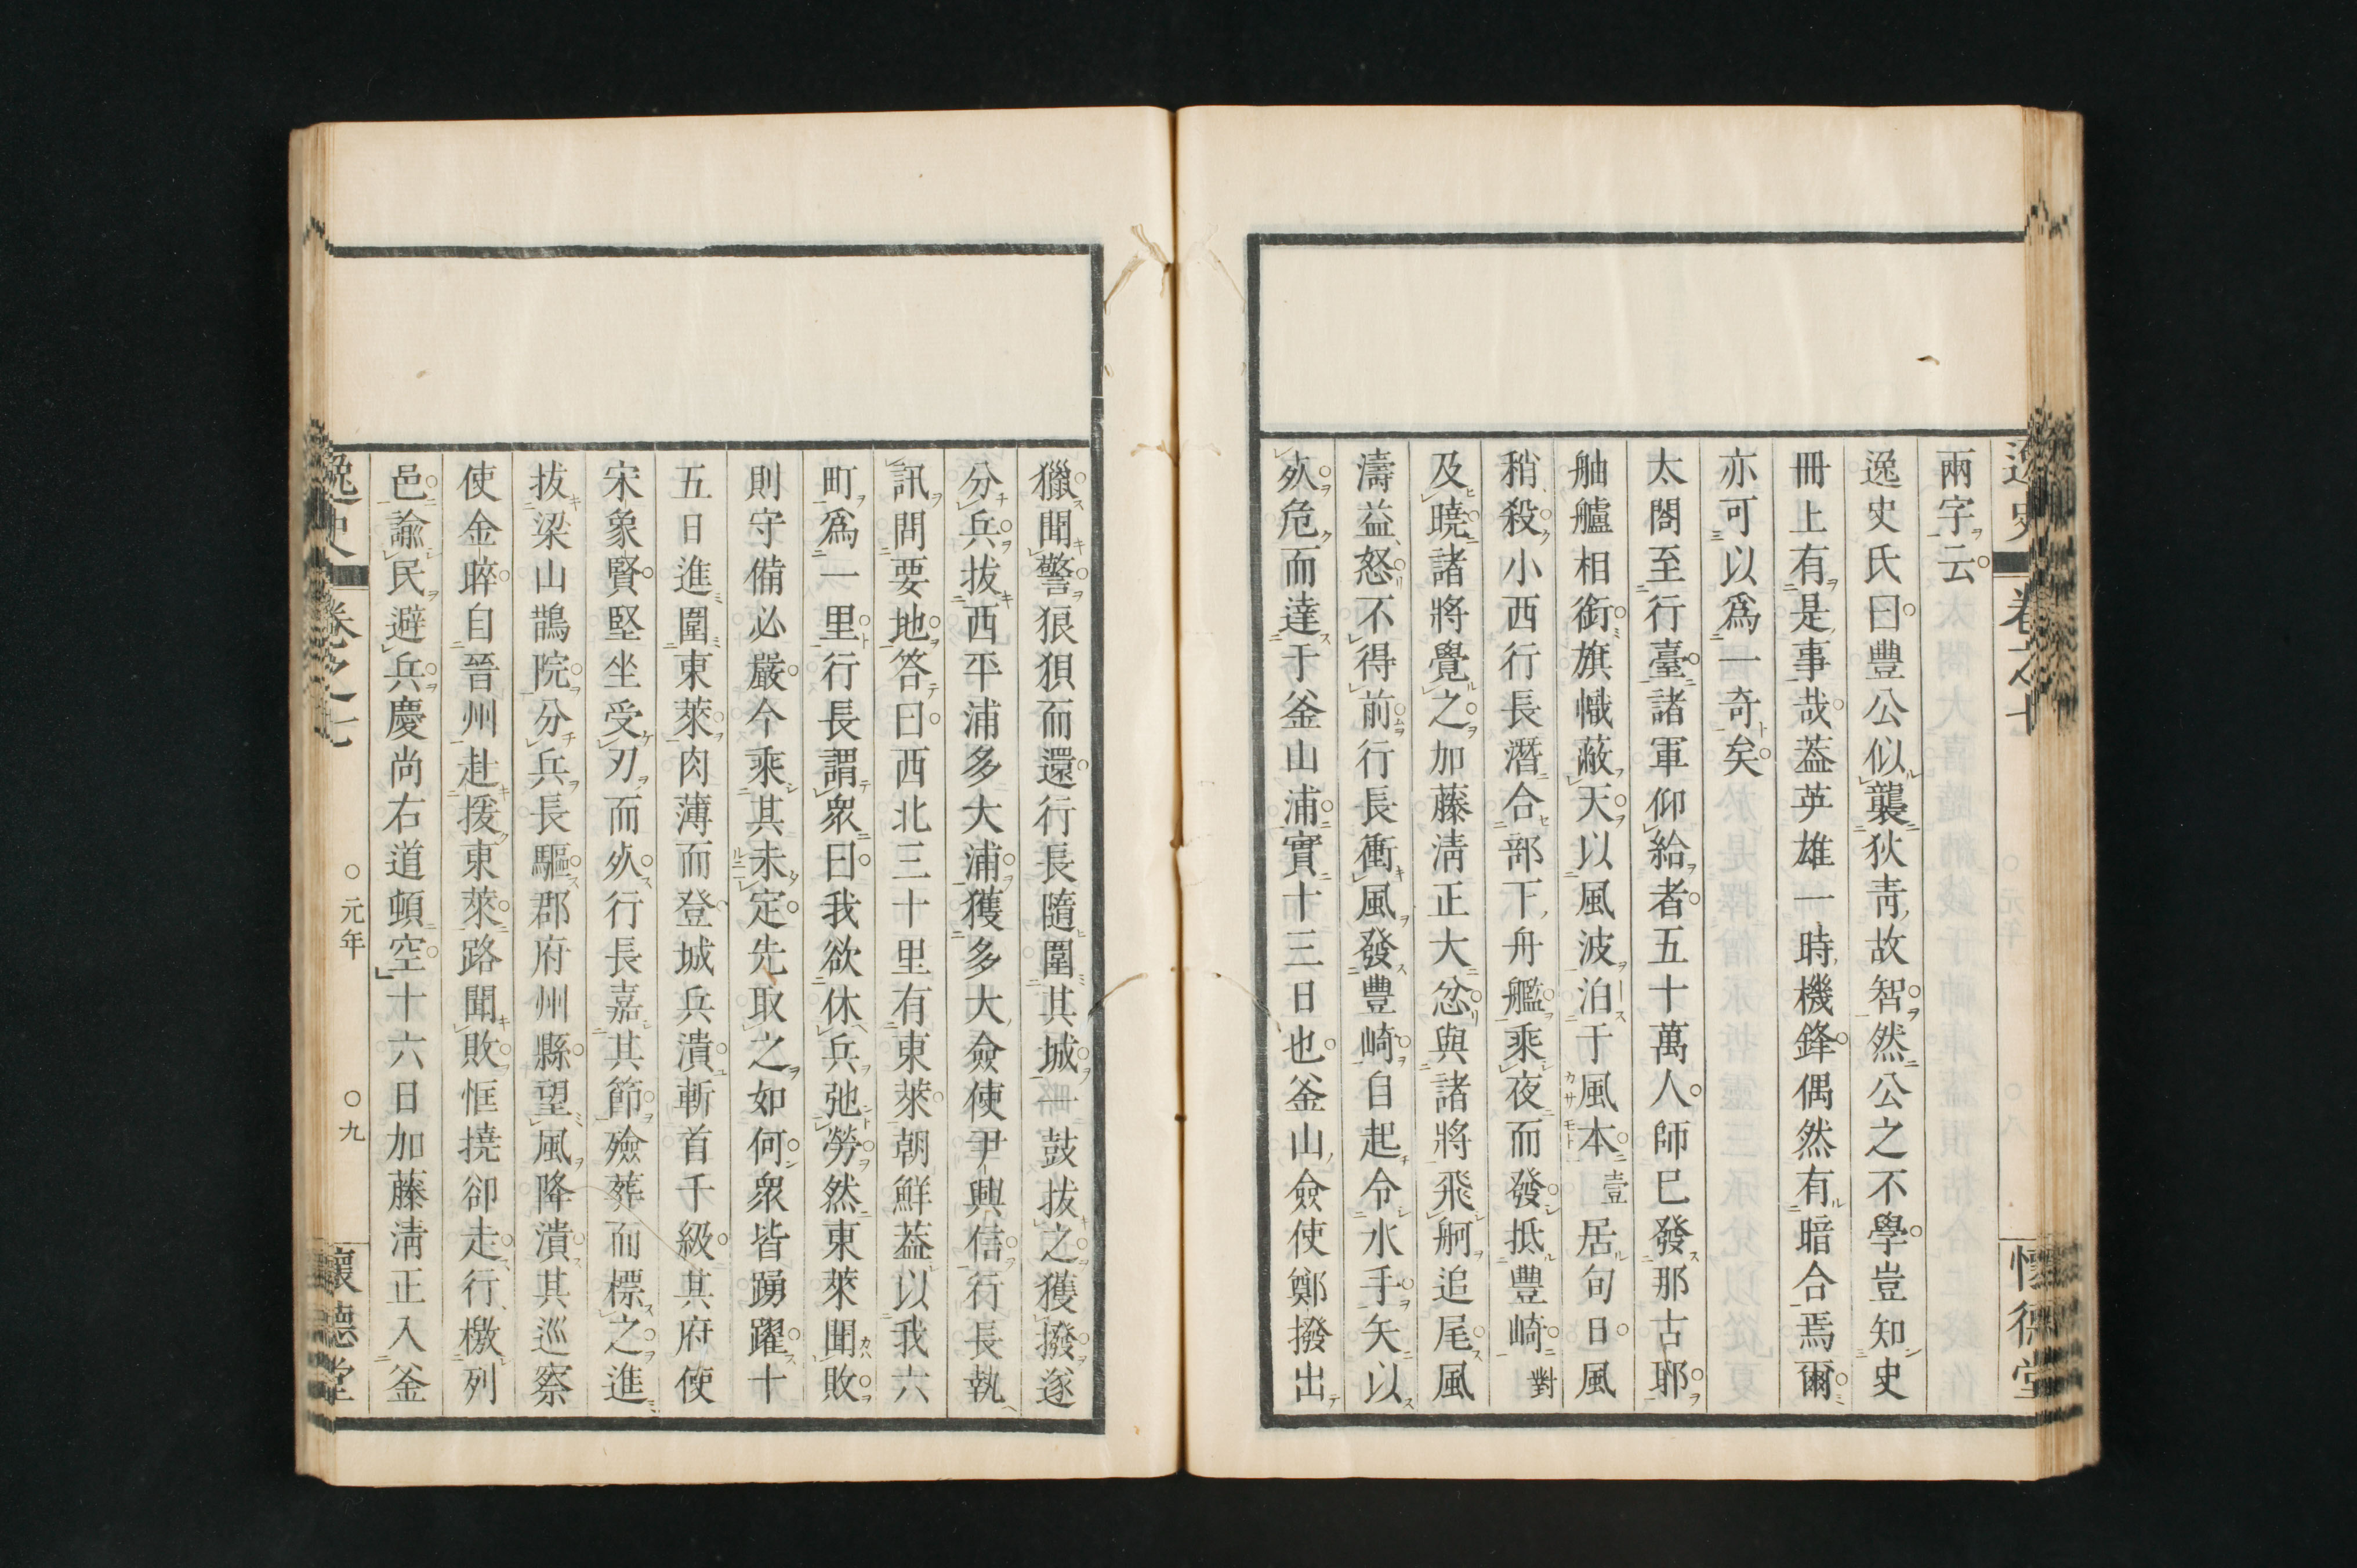 兩字云
逸史氏曰豐公似襲狄靑故智然公之不學豈知史
冊上有是事哉葢英雄一時機鋒偶然有暗合焉爾
亦可以爲一奇矣
太閤至行臺諸軍仰給者五十萬人師已發那古耶
舳艫相銜旗幟蔽天以風波泊于風本壹居旬日風
稍殺小西行長潛合部下舟艦乘夜而發抵豐崎對
及曉諸將覺之加藤淸正大忿與諸將飛舸追尾風
濤益怒不得前行長衝風發豐崎自起令水手矢以
死危而達于釜山浦實十三日也釜山僉使鄭撥出
獵聞警狼狽而還行長隨圍其城一鼓拔之獲撥遂
分兵拔西平浦多大浦獲多大僉使尹興信行長執
訊問要地答曰西北三十里有東萊朝鮮葢以我六
町爲一里行長謂衆曰我欲休兵弛勞然東萊聞敗
則守備必嚴今乘其未定先取之如何衆皆踴躍十
五日進圍東萊肉薄而登城兵潰斬首千級其府使
宋象賢堅坐受刃而死行長嘉其節殮葬而標之進
拔梁山鵲院分兵長驅郡府州縣望風降潰其巡察
使金晬自晉州赴援東萊路聞敗恇撓卻走行檄列
邑諭民避兵慶尚右道頓空十六日加藤淸正入釜
逸史 卷之七 ○元年 ○九 懷德堂